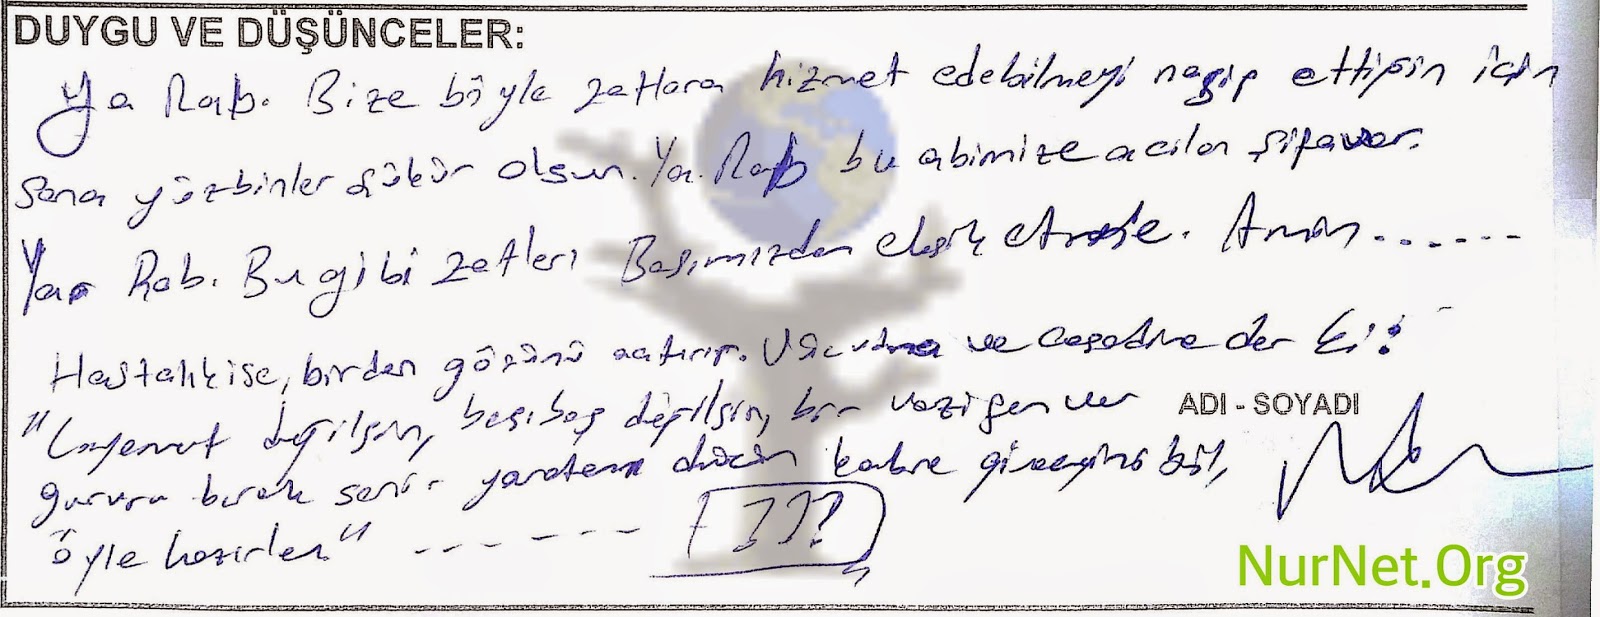 DUYGU VE DÜŞÜNCELER:
Ya Rab. Bize böyle zatlara hizmet edebilmeyi nasip ettiğin için
sana yüzbinler şükür olsun. Ya Rab bu abimize acilen şifa ver.
Ya Rab. Bu gibi zatleri Başımızdan eksik etme. Amin.......
Hastalık ise, birden gözünü açtırır. Vücuduna ve cesedine der ki:
"Layemut değilsin, başıboş değilsin, bir vazifen var
ADI - SOYADI
gururu bırak seni yaratanı düşün kabre gireceğini bil,
öyle hazırlan" - - - - - -
NurNet.Org